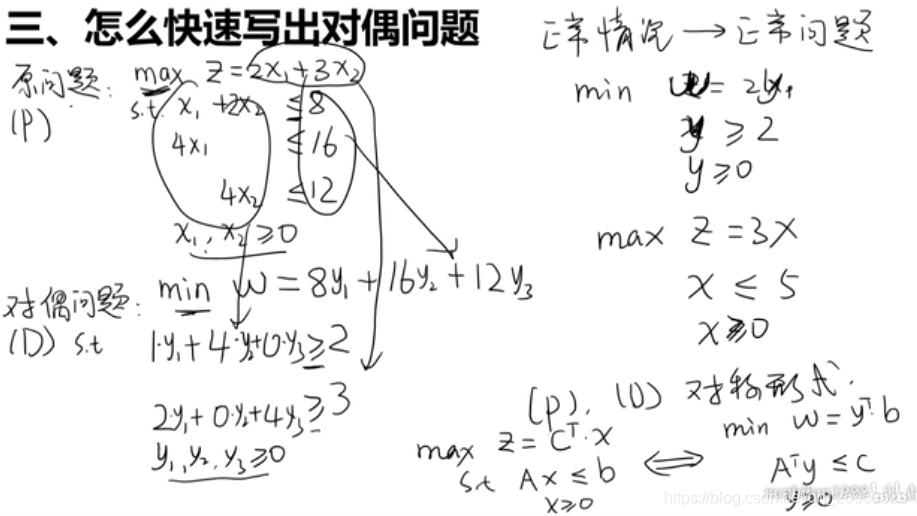 三、怎么快速写出对偶问题
原问题:
(P)
max Z=2x₁+3x₂
s.t. x₁+2x₂ ≤8
4x₁ ≤16
4x₂ ≤12
x₁, x₂ ≥0
对偶问题:
(D)
min W=8y₁+16y₂+12y₃
s.t 1·y₁+4·y₂+0·y₃≥2
2·y₁+0·y₂+4y₃≥3
y₁,y₂,y₃≥0
正常情况→正常问题
min = 2y
y≥2
y≥0
max Z=3x
x≤5
x≥0
(P).(D)对称形式.
max Z=Cᵀ·x
s.t Ax≤b
x≥0
⟺
min W=yᵀ·b
Aᵀy≤C
y≥0
https://blog.csdn.net/